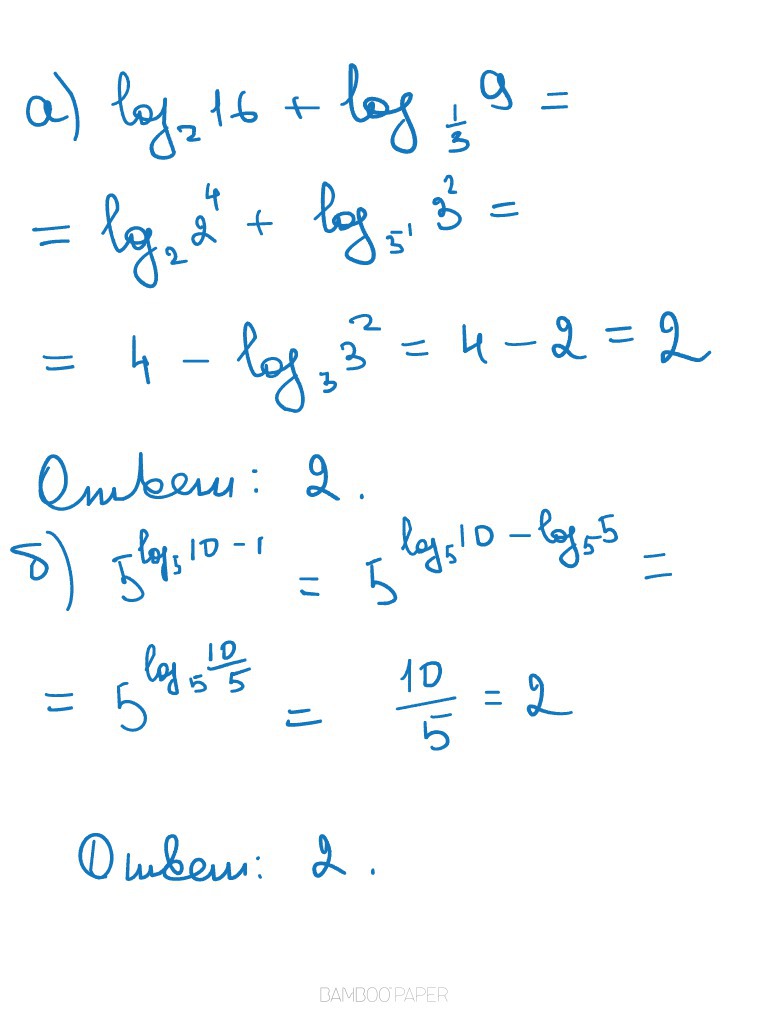 а) log₂ 16 + log_{1/3} 9 =
= log₂ 2⁴ + log_{3^1} 3² =
= 4 − log₃ 3² = 4 − 2 = 2
Ответ: 2.
б) 5^{log₅ 10 − 1} = 5^{log₅ 10 − log₅ 5} =
= 5^{log₅ 10/5} = 10/5 = 2
Ответ: 2.
BAMBOO PAPER